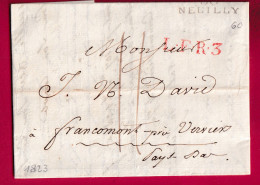 60
NEUILLY
60
Monsieur
L.P.R.3
J. N. David
à francomont près Verviers
Pays Bas
1823